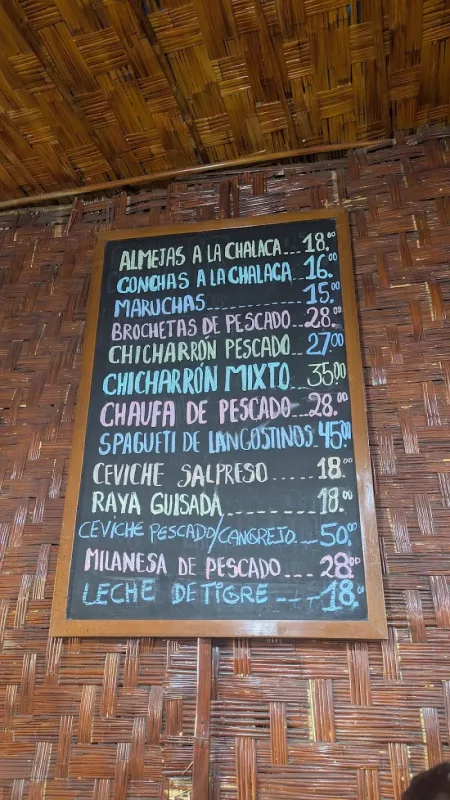 ALMEJAS A LA CHALACA...18.00
CONCHAS A LA CHALACA...16.00
MARUCHAS...........15.00
BROCHETAS DE PESCADO...28.00
CHICHARRÓN PESCADO...27.00
CHICHARRÓN MIXTO...35.00
CHAUFA DE PESCADO...28.00
SPAGUETI DE LANGOSTINOS.45.00
CEVICHE SALPRESO ....18.00
RAYA GUISADA..........18.00
CEVICHE PESCADO/CANGREJO...50.00
MILANESA DE PESCADO....28.00
LECHE DE TIGRE ----18.00